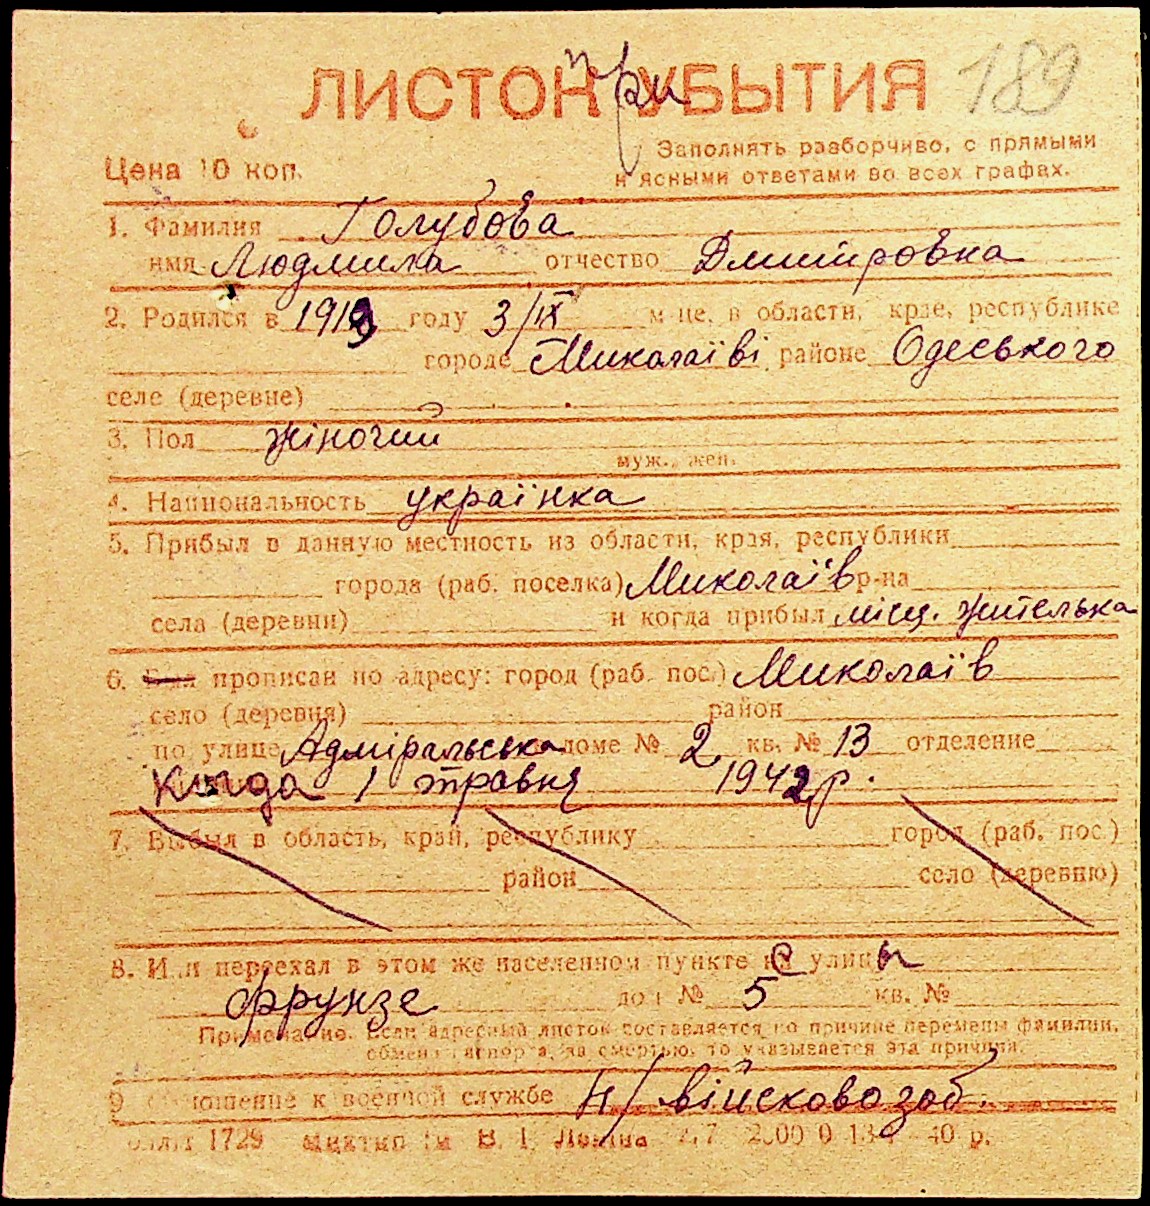 ЛИСТОК при УБЫТИЯ 189
Цена 10 коп.
Заполнять разборчиво, с прямыми
и ясными ответами во всех графах.
1. Фамилия Голубова
имя Людмила отчество Дмитровна
2. Родился в 1919 году 3/IX м-це, в области, крае, республике
городе Миколаїві районе Одеського
селе (деревне)
3. Пол жіночий
муж., жен.
4. Национальность українка
5. Прибыл в данную местность из области, края, республики
города (раб. поселка) Миколаїв р-на
села (деревни) и когда прибыл місц. жителька
6. Был прописан по адресу: город (раб. пос.) Миколаїв
село (деревня) район
по улице Адміральська доме № 2 кв. № 13 отделение
Когда 1 травня 1942 р.
7. Выбыл в область, край, республику город (раб. пос.)
район село (деревню)
8. Или переехал в этом же населенном пункте с улицы
Фрунзе дом № 5 кв. №
Примечание. Если адресный листок составляется по причине перемены фамилии,
обмена паспорта, за смертью, то указывается эта причина.
9 Отношение к военной службе н/військовозоб.
1729 В. И. Ленина 40 р.